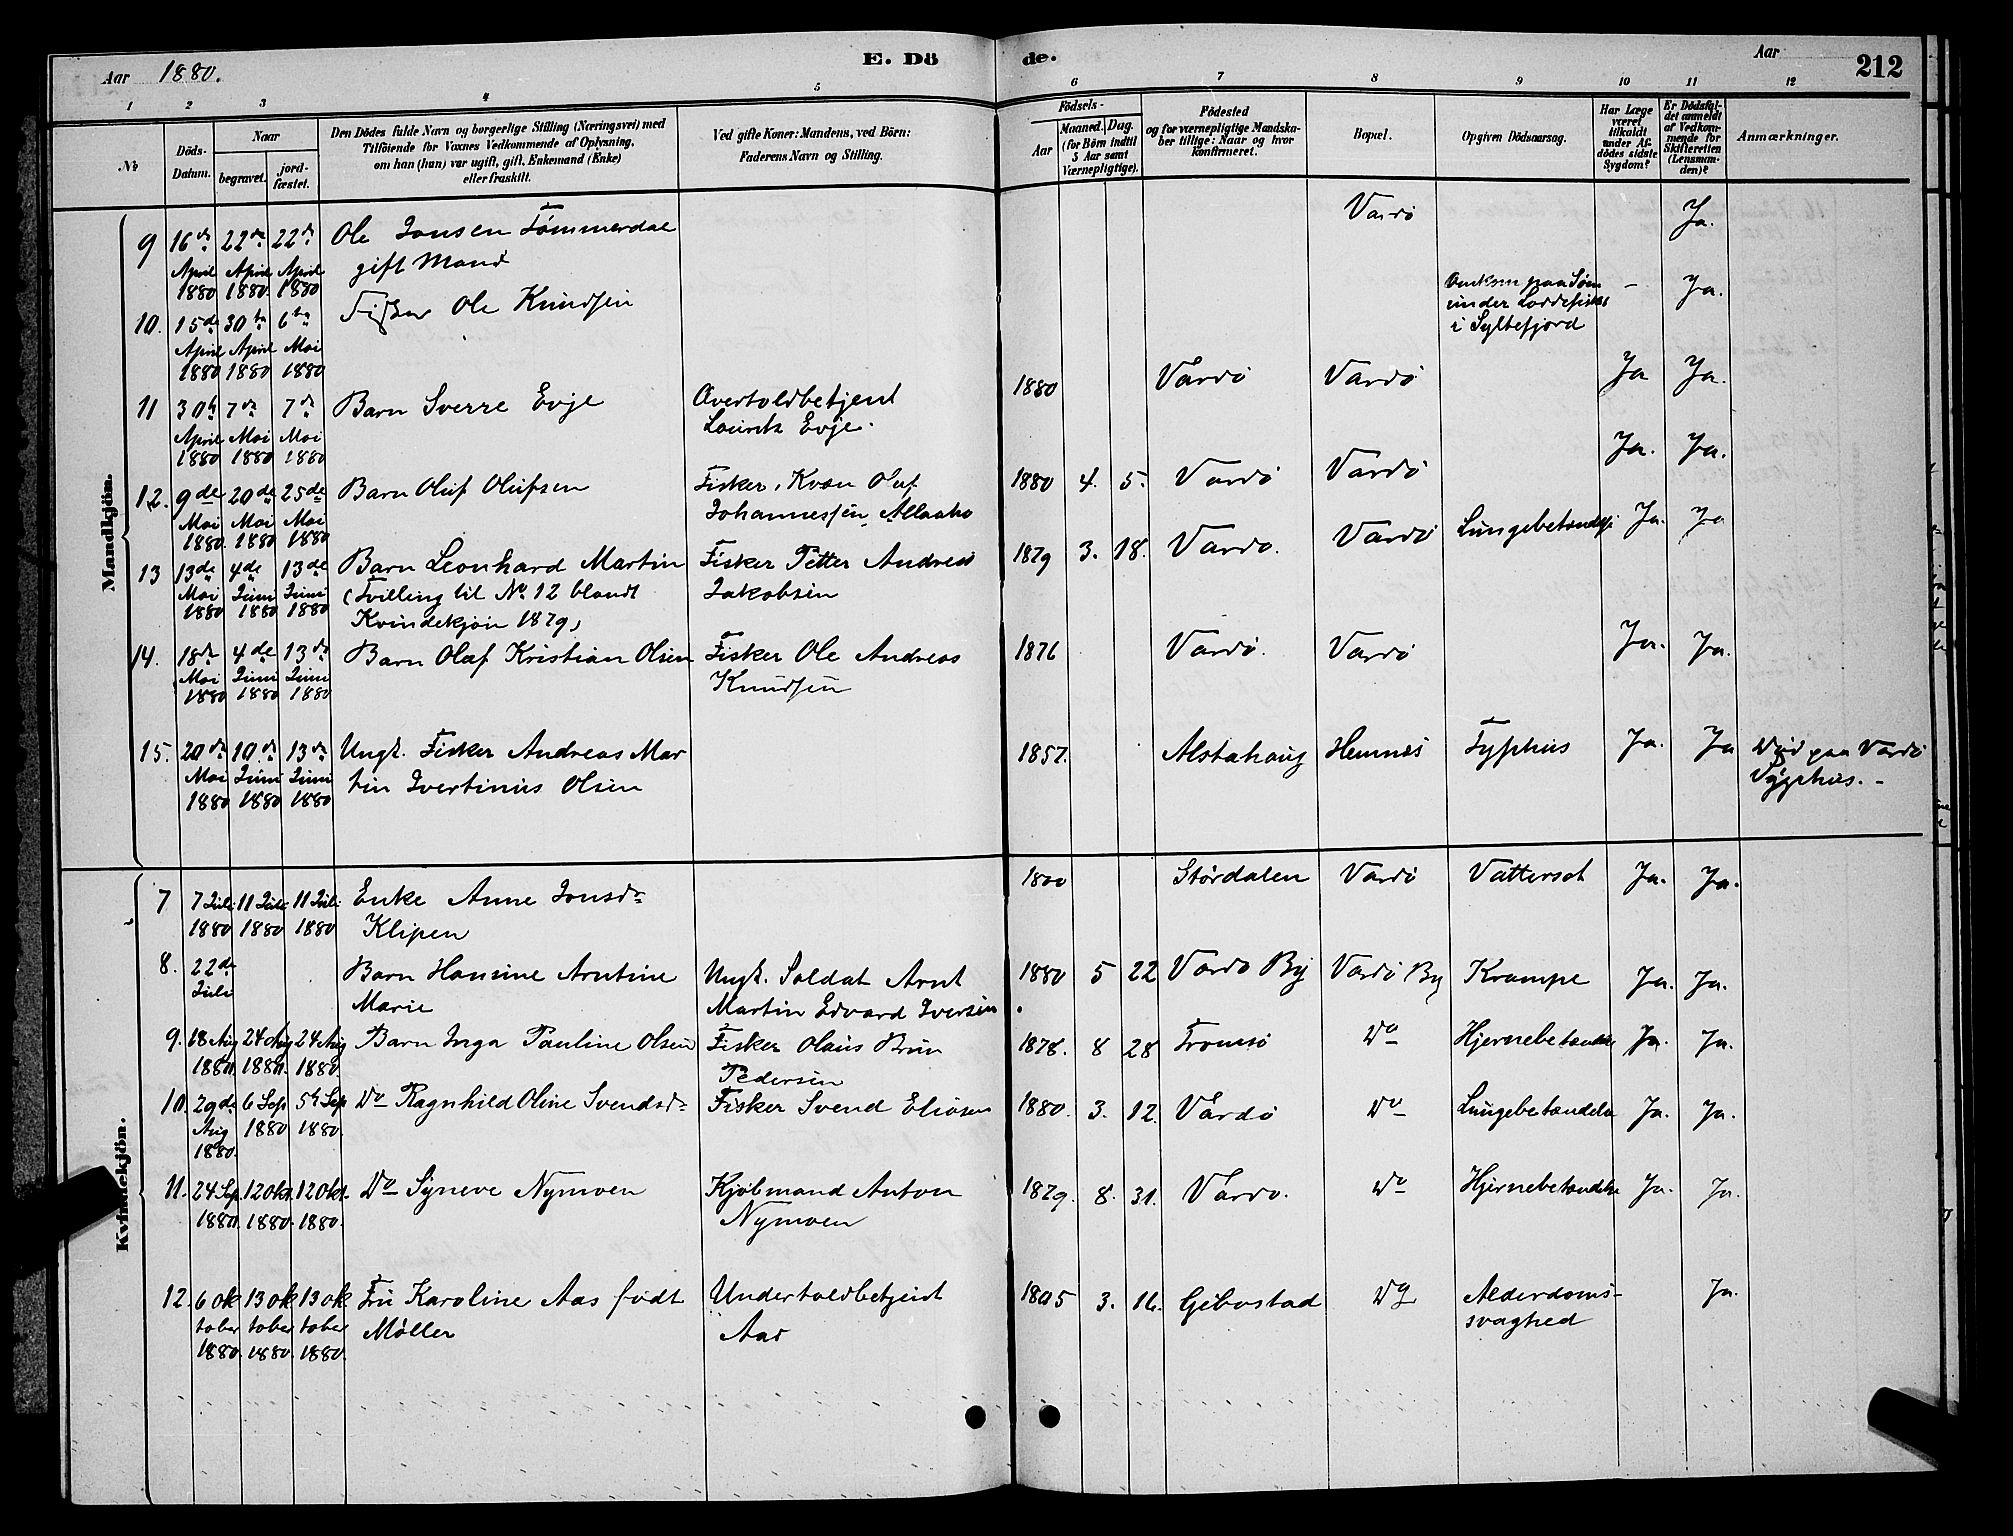 Aar 1880.
E. Dö
de.
Aar
212
1 2 3 4 5 6 7 8 9 10 11 12
No
Döds-Datum.
Naar
begravet.
jord-fæstet.
Den Dödes fulde Navn og borgerlige Stilling (Næringsvei) med
Tilföiende for Voxnes Vedkommende af Oplysning,
om han (hun) var ugift, gift, Enkemand (Enke)
eller fraskilt.
Ved gifte Koner: Mandens, ved Börn:
Faderens Navn og Stilling.
Födsels-
Aar
Maaned. Dag.
(for Börn indtil
5 Aar samt
Værnepligtige).
Födested
og for værnepligtige Mandska-
ber tillige: Naar og hvor
konfirmeret.
Bopæl.
Opgiven Dödsaarsag.
Har Læge
været
tilkaldt
under Af-
dödes sidste
Sygdom?
Er Dödsfal-
det anmeldt
af Vedkom-
mende for
Skifteretten
(Lensman-
den)?
Anmærkninger.
Mandkjön.
9 16de April 1880 22de April 1880. 22de April 1880 Ole Jonsen Tømmerdal
gift Mand
Vardø Ja.
10. 15de April 1880 30te April 1880 6te Mai 1880 Fisker Ole Knudsen
Omkom paa Søen
under Loddefiske
i Syltefjord - Ja.
11 30te April 1880 7de Mai 1880 7de Mai 1880 Barn Sverre Evje
Overtoldbetjent
Lauritz Evje.
1880 Vardø Vardø Ja Ja.
12. 9de Mai 1880. 20de Mai 1880 25de Mai 1880 Barn Oluf Olufsen
Fisker, Kvæn Oluf
Johannessen
1880 4. 5. Vardø Vardø Ja. Ja.
13 13de Mai 1880 4de Juni 1880 13de Juni 1880 Barn Leonhard Martin
(Tvilling til No 12 blandt
Kvindekjøn 1879)
Fisker Petter Andreas
Jakobsen
1879 3. 18. Vardø. Vardø Lungebetændelse Ja. Ja
14. 18de Mai 1880 4de Juni 1880 13de Juni 1880 Barn Olaf Kristian Olsen
Fisker Ole Andreas
Knudsen
1876 Vardø. Vardø Ja. Ja.
15. 20de Mai 1880 10de Juni 1880 13de Juni 1880 Ungk. Fisker Andreas Mar
tin Ivertinus Olsen
1857. Alstahaug Hemnæs Typhus Ja. Ja
Død paa Vardø
Kvindekjön.
7 7 Juli 1880 11 Juli 1880 11 Juli 1880 Enke Anne Jonsdr
Klipen
1800 Størdalen Vardø Vattersot Ja. Ja.
8. 22de Juli Barn Hansine Arntine
Marie
Ungk. Soldat Arnt
Martin Edvard Iversen
1880 5 22 Vardø By Vardø By Krampe Ja. Ja.
9. 18 Aug 1880. 24 Aug 1880. 24 Aug 1880. Barn Inga Pauline Olsen
Fisker Olaus Brun
Pedersen
1878. 8 28 Tromsø Do Hjernebetændelse Ja. Ja.
10. 29de Aug 1880. 6 Sep 1880 5te Sep 1880. Do Ragnhild Oline Svendsdr
Fisker Svend Eliasen
1880. 3. 12. Vardø Do Lungebetændelse Ja. Ja.
11. 24 Sep 1880. 12 Okt. 1880. 12 Okt. 1880. Do Syneve Nymoen
Kjøbmand Anton
Nymoen
1879. 8. 31. Vardø. Do Hjernebetændelse Ja. Ja.
12. 6 Oktober 1880. 13 Oktober 1880 13 Oktober 1880. Fru Karoline Aas født
Møller
Undertoldbetjent
Aas
1805 3. 16. Gibostad Do Alderdoms-
svaghed Ja.